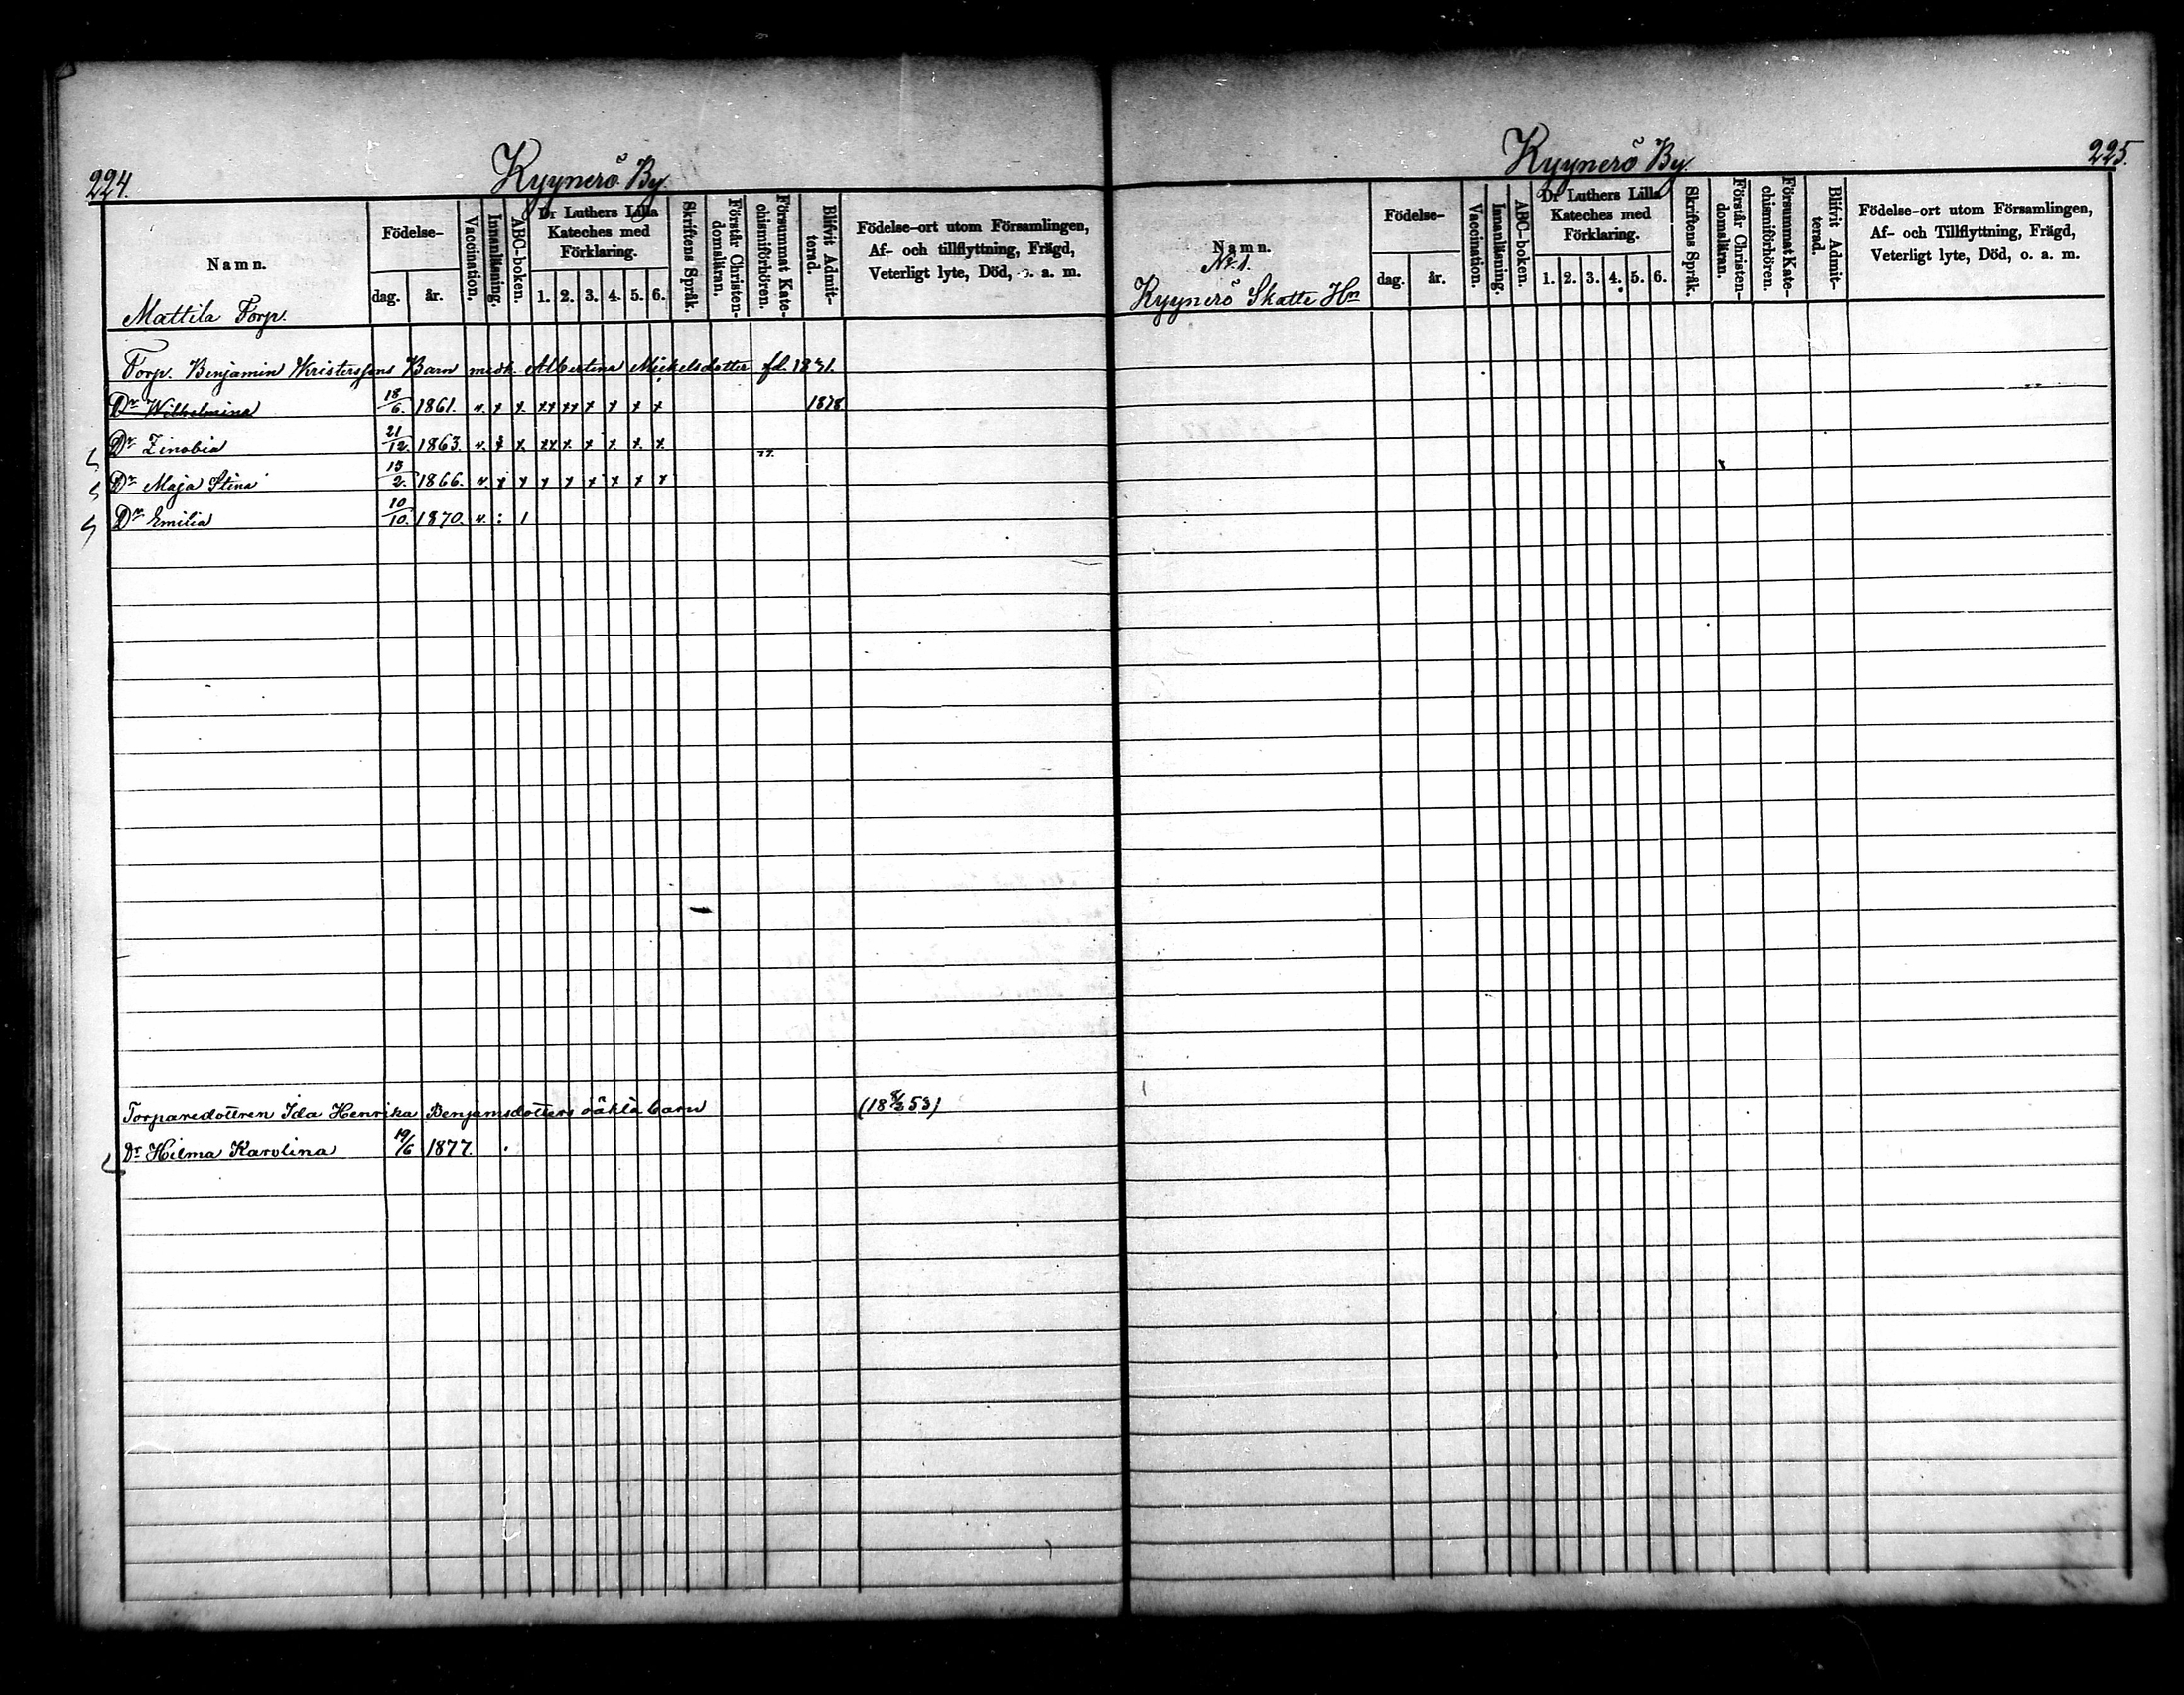 224.
Kyynerö By.
Namn.
Mattila Torp.
Födelse-
dag.
år.
Vaccination.
Innanläsning.
ABC-boken.
Dr Luthers Lilla
Kateches med
Förklaring.
1. 2. 3. 4. 5. 6.
Skriftens Språk.
Förstår Christen-
domsläran.
Försummat Kate-
chismiförhören.
Blifvit Admit-
terad.
Födelse-ort utom Församlingen,
Af- och tillflyttning, Frägd,
Veterligt lyte, Död, o. a. m.
Torp. Benjamin Kristerssons Barn med h. Albertina Mickelsdotter fd. 1831.
Dr Wilhelmina 18/6. 1861. v. x x. xx xx x x x x 1878
Dr Zinobia 21/12. 1863. v. x x. xx x. x x. x. x.
Dr Maja Stina 13/2. 1866. v. x x x x x x x x
Dr Emilia 10/10. 1870. v. : 1
Torparedottren Ida Henrika Benjamsdotters oäkta barn (18 8/3 53)
Dr Hilma Karolina 19/6 1877.
225.
Kyynerö By.
Namn.
No 1.
Kyynerö Skatte Hn
Födelse-
dag.
år.
Vaccination.
Innanläsning.
ABC-boken.
Dr Luthers Lilla
Kateches med
Förklaring.
1. 2. 3. 4. 5. 6.
Skriftens Språk.
Förstår Christen-
domsläran.
Försummat Kate-
chismiförhören.
Blifvit Admit-
terad.
Födelse-ort utom Församlingen,
Af- och Tillflyttning, Frägd,
Veterligt lyte, Död, o. a. m.